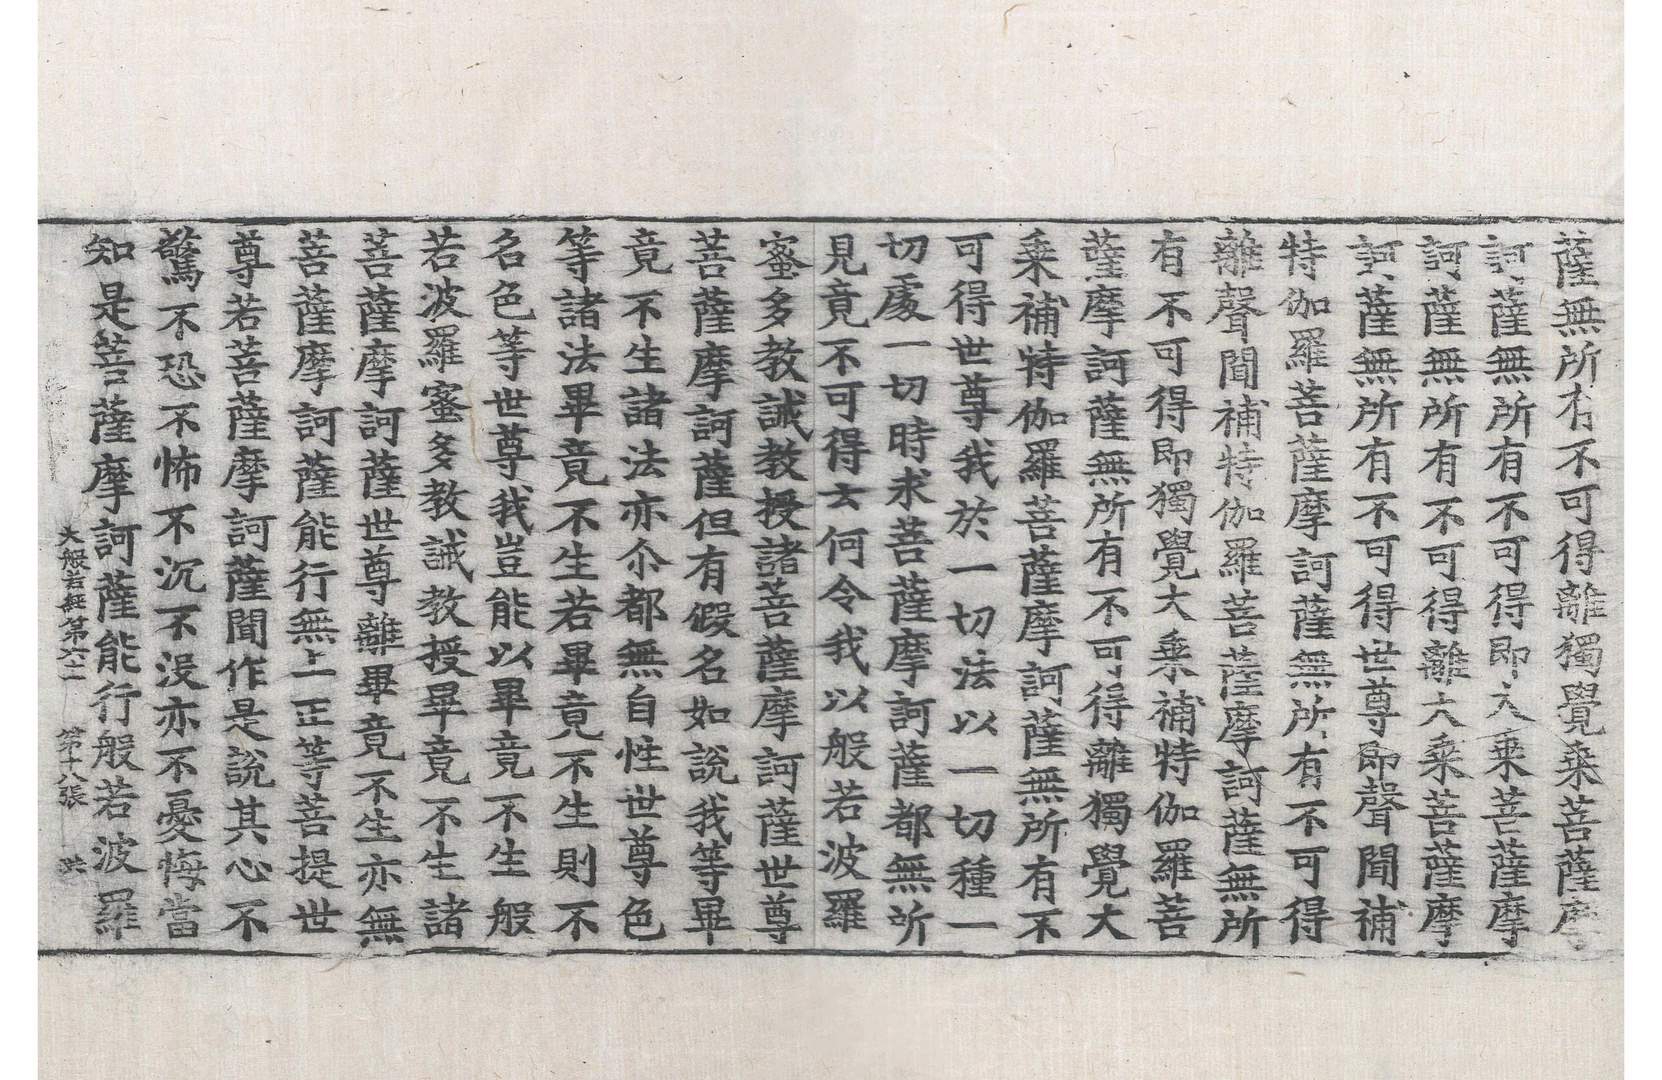 薩無所有不可得離獨覺乘菩薩摩
訶薩無所有不可得即大乘菩薩摩
訶薩無所有不可得離大乘菩薩摩
訶薩無所有不可得世尊即聲聞補
特伽羅菩薩摩訶薩無所有不可得
離聲聞補特伽羅菩薩摩訶薩無所
有不可得即獨覺大乘補特伽羅菩
薩摩訶薩無所有不可得離獨覺大
乘補特伽羅菩薩摩訶薩無所有不
可得世尊我於一切法以一切種一
切處一切時求菩薩摩訶薩都無所
見竟不可得云何令我以般若波羅
蜜多教誡教授諸菩薩摩訶薩世尊
菩薩摩訶薩但有假名如說我等畢
竟不生諸法亦尒都無自性世尊色
等諸法畢竟不生若畢竟不生則不
名色等世尊我豈能以畢竟不生般
若波羅蜜多教誡教授畢竟不生諸
菩薩摩訶薩世尊離畢竟不生亦無
菩薩摩訶薩能行無上正等菩提世
尊若菩薩摩訶薩聞作是說其心不
驚不恐不怖不沉不沒亦不憂悔當
知是菩薩摩訶薩能行般若波羅
大般若經第六十一 第十八張 洪